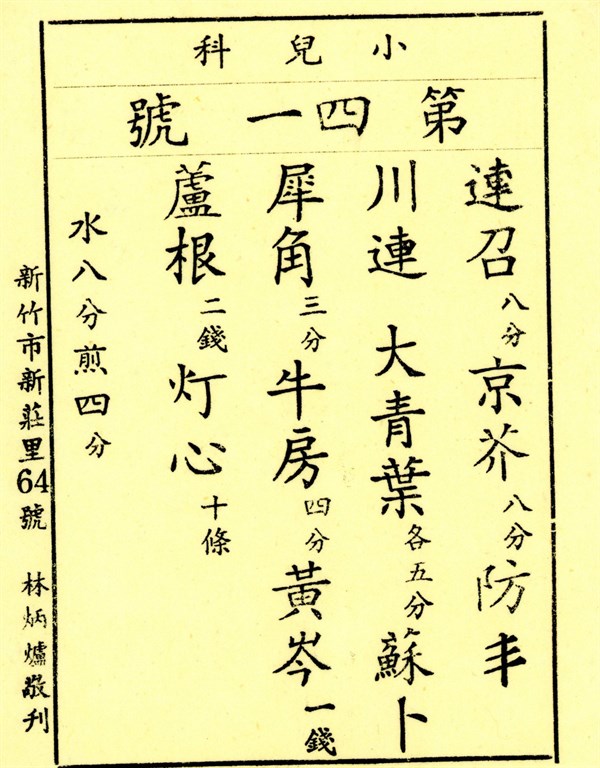 小兒科
第四一號
連召八分京芥八分防丰
川連 大青葉各五分蘇卜
犀角三分牛房四分黃岑一錢
蘆根二錢灯心十條
水八分煎四分
新竹市新莊里64號 林炳爐敬刊